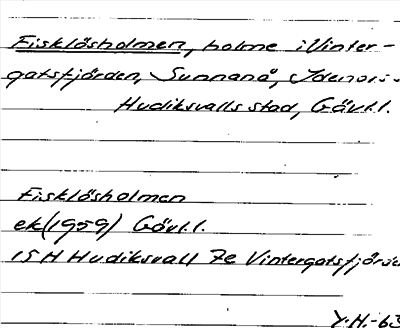 Fisklösholmen, holme i Vinter-
gatsfjärden, Sunnanå, Idenors s
Hudiksvalls stad, Gävl.l.
Fisklösholmen
ek (1959) Gävl.l.
15H Hudiksvall 7e Vintergatsfjärde
Y.H.-63